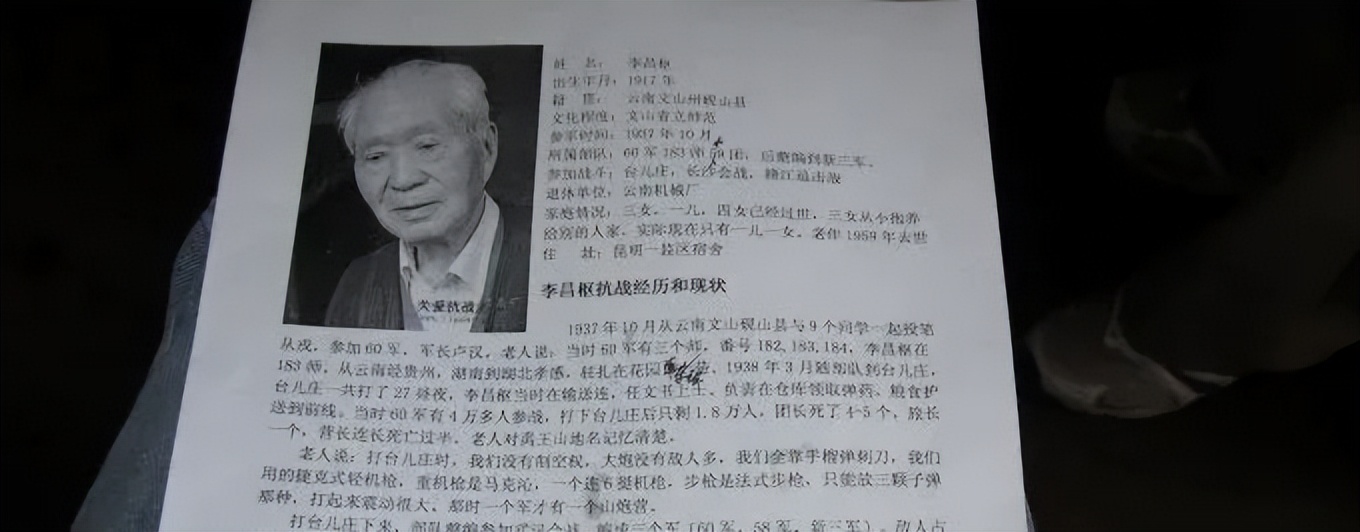 姓 名： 李昌枢
出生年月：1917年
籍 贯： 云南文山州砚山县
文化程度：文山省立师范
参军时间：1937年10月
所属部队：60军183师 团，后整编到新三军。
参加战斗：台儿庄，长沙会战，赣江追击战
退休单位，云南机械厂
家庭情况：三女，一儿，四女已经过世，三女从小抱养
给别的人家，实际现在只有一儿一女。老伴1959年去世
住 址：昆明 区宿舍
关爱抗战
李昌枢抗战经历和现状
1937年10月从云南文山砚山县与9个同学一起投笔
从戎，参加60军，军长卢汉。老人说：当时60军有三个师，番号182、183、184，李昌枢在
183师，从云南经贵州，湖南到湖北孝感，驻扎在花园 ，1938年3月随部队到台儿庄，
台儿庄一共打了27昼夜，李昌枢当时在输送连，任文书上士，负责在仓库领取弹药、粮食护
送到前线。当时60军有4万多人参战，打下台儿庄后只剩1.8万人，团长死了4-5个，旅长
一个，营长连长死亡过半。老人对禹王山地名记忆清楚。
老人说：打台儿庄时，我们没有制空权，大炮没有敌人多，我们全靠手榴弹刺刀，我们
用的捷克式轻机枪，重机枪是马克沁，一个连6挺机枪，步枪是法式步枪、只能放三颗子弹
那种，打起来震动很大。那时一个军才有一个山炮营。
打台儿庄下来，部队整编参加武汉会战， 三个军（60军，58军，新三军）。敌人占